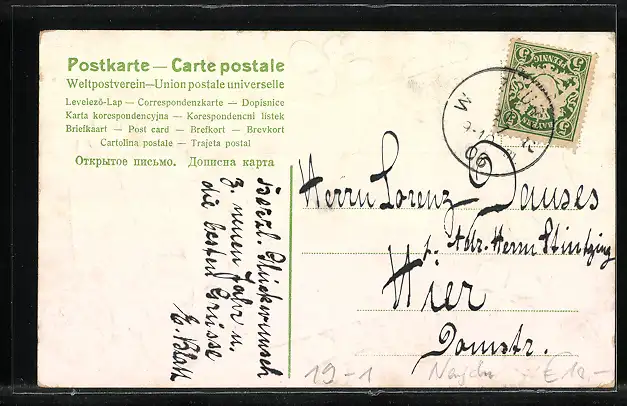 Postkarte — Carte postale
Weltpostverein—Union postale universelle
Levelező-Lap — Correspondenzkarte — Dopisnice
Karta korespondencyjna — Korespondenční lístek
Briefkaart — Post card — Brefkort — Brevkort
Cartolina postale — Trajeta postal
Открытое письмо. Дописна карта
PFENNIG
BAYERN
5
5
5
5
06
Herzl. Glückwunsch
z. neuen Jahr u.
die besten Grüsse
Herrn Lorenz
p. Adr. Herrn
Hier
Domstr.
19-1